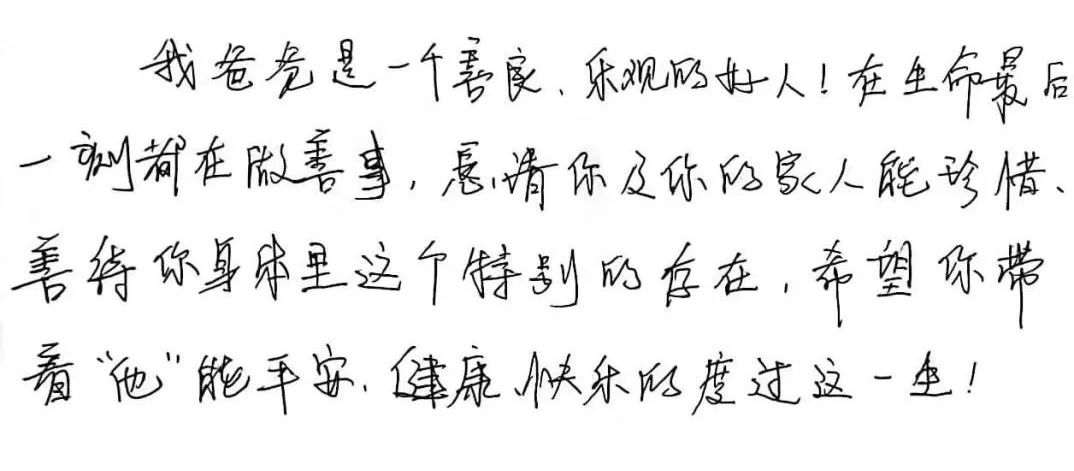 我爸爸是一个善良、乐观的好人！在生命最后
一刻都在做善事，恳请你及你的家人能珍惜、
善待你身体里这个特别的存在，希望你带
着“他”能平安、健康、快乐的度过这一生！